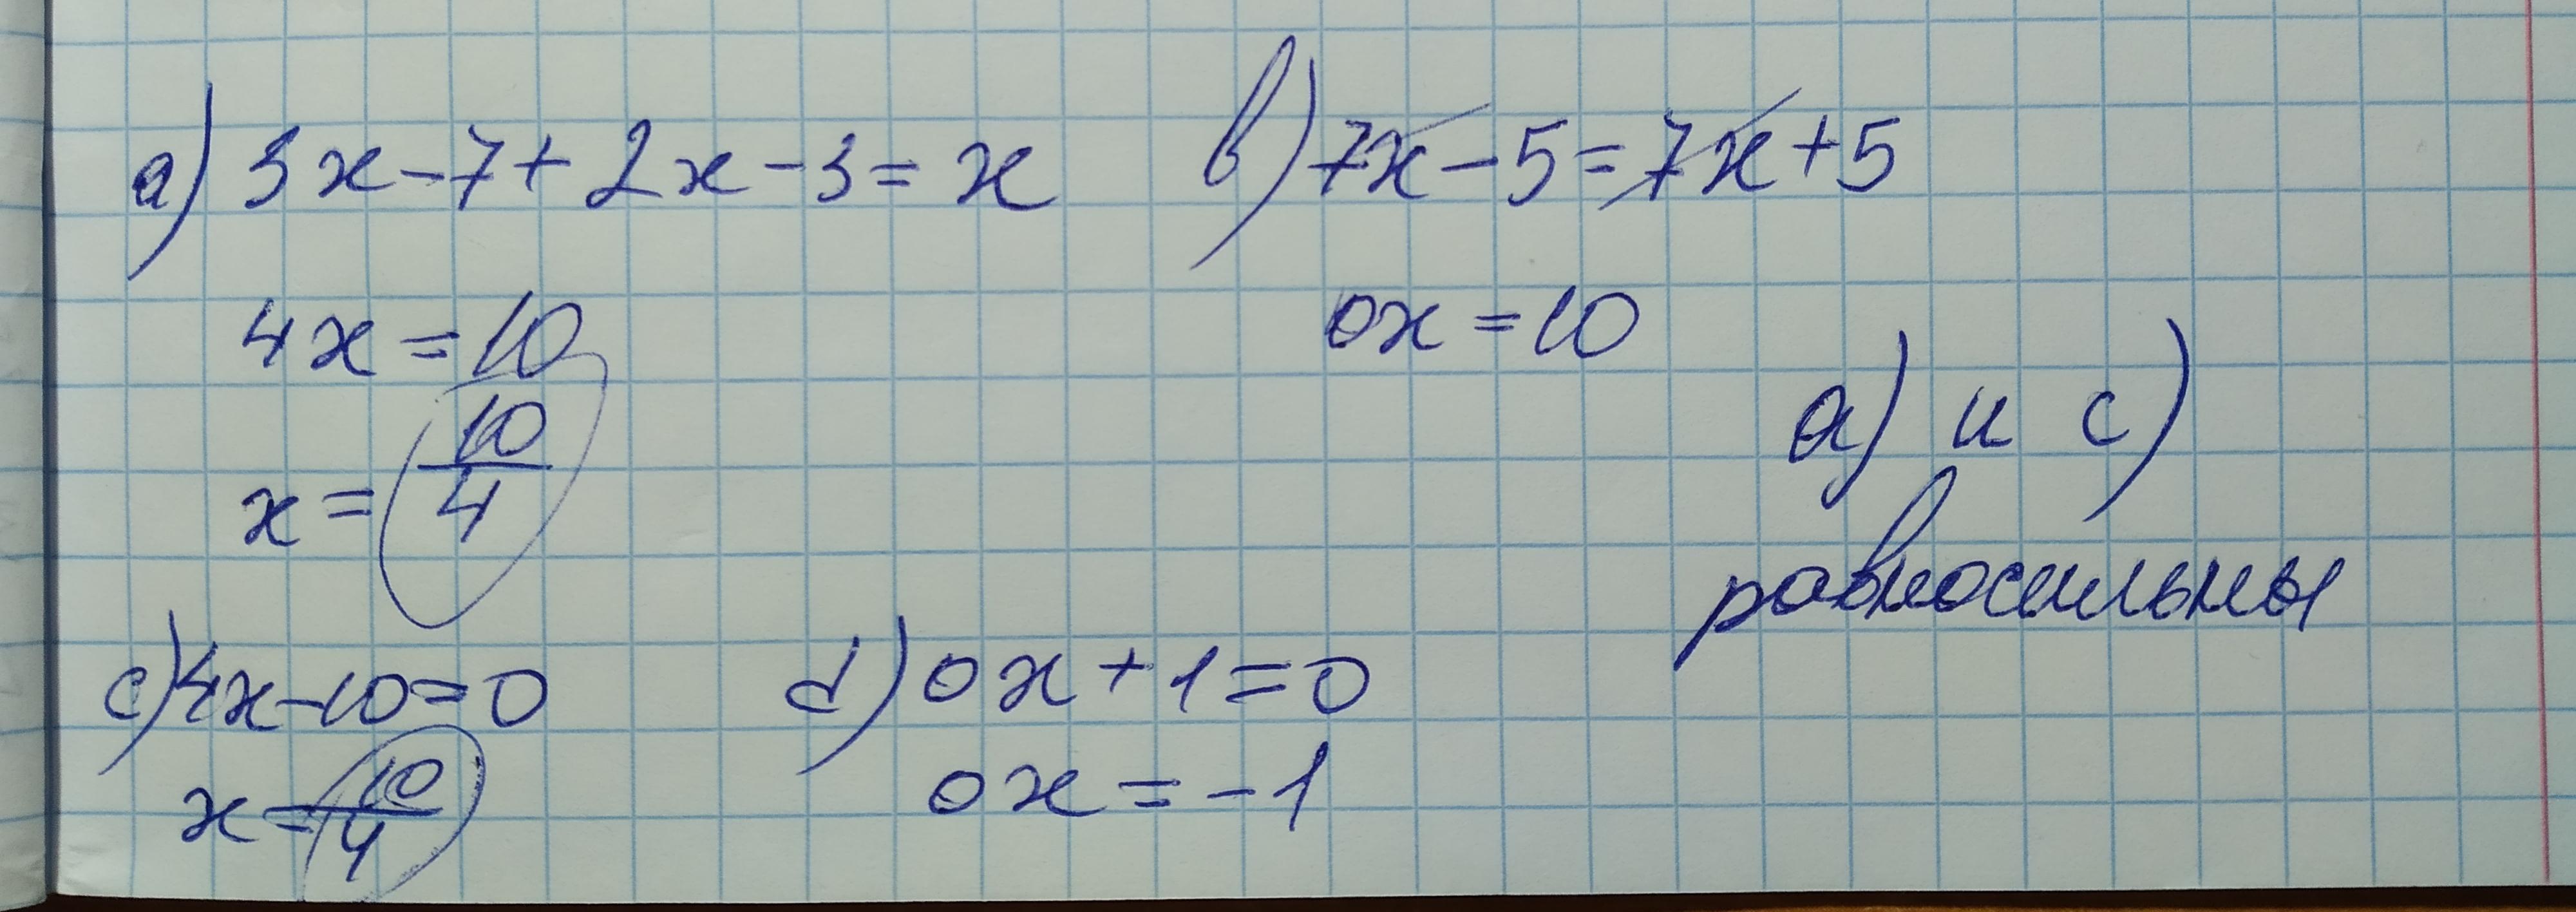 a) 3x-7+2x-3=x
4x=10
x=10/4
b) 7x-5=7x+5
0x=10
c) 4x-10=0
x=10/4
d) 0x+1=0
0x=-1
a) и c)
равносильны